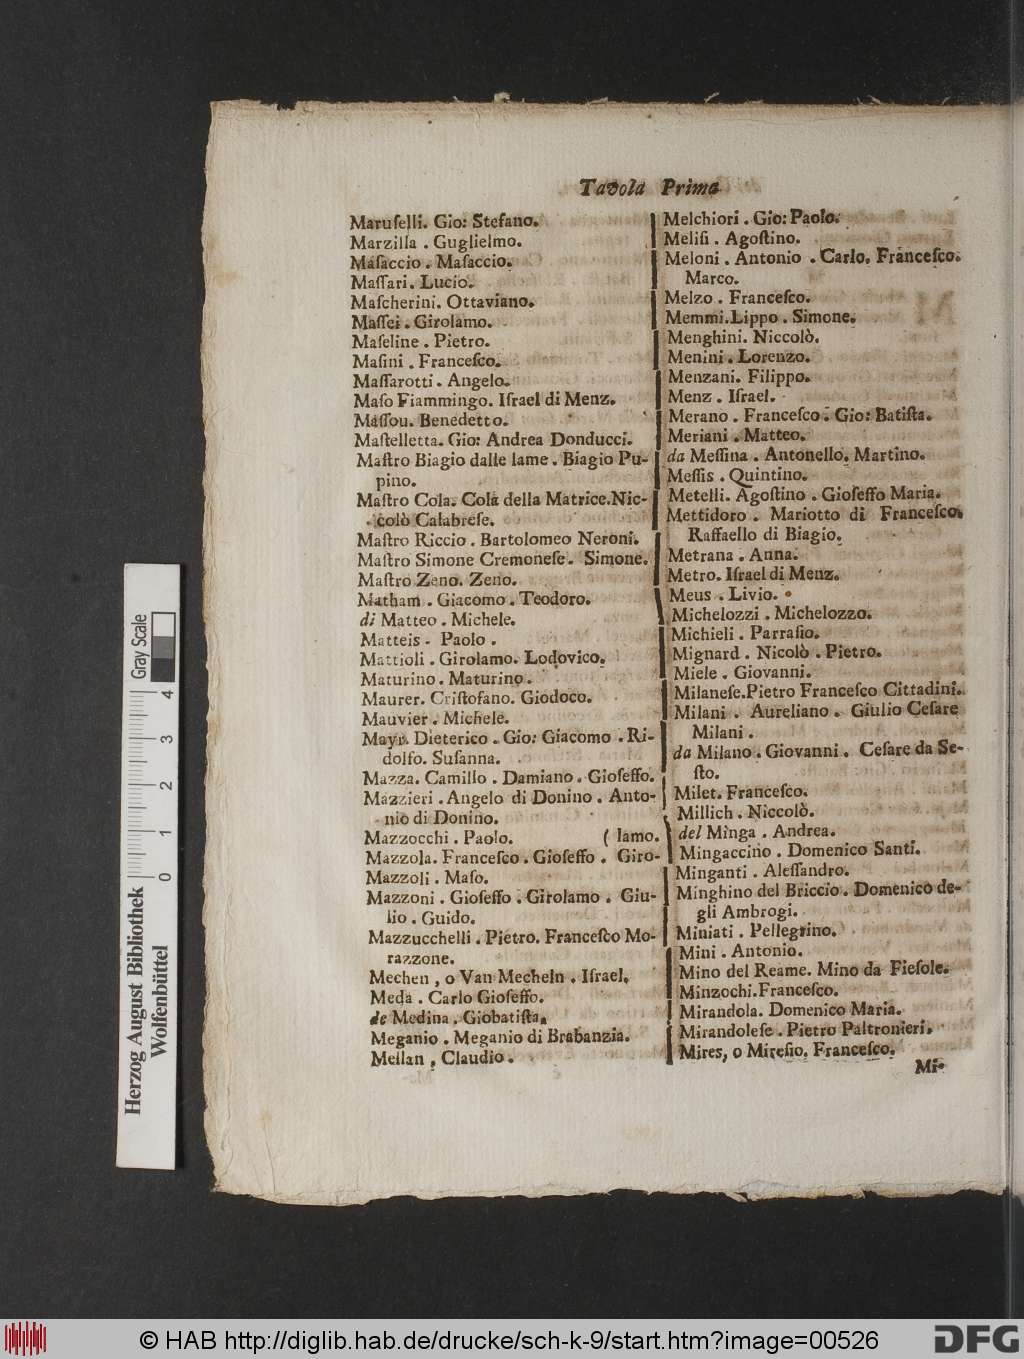 Tavola Prima
Maruſelli. Gio: Stefano.
Marzilla . Guglielmo.
Maſaccio . Maſaccio.
Maſſari. Lucio.
Maſcherini. Ottaviano.
Maſſei . Girolamo.
Maſeline . Pietro.
Maſini . Franceſco.
Maſſarotti . Angelo.
Maſo Fiammingo. Iſrael di Menz.
Maſſou. Benedetto.
Maſtelletta. Gio: Andrea Donducci.
Maſtro Biagio dalle lame . Biagio Pu-
pino.
Maſtro Cola. Cola della Matrice. Nic-
colò Calabreſe.
Maſtro Riccio . Bartolomeo Neroni.
Maſtro Simone Cremoneſe . Simone.
Maſtro Zeno. Zeno.
Matham . Giacomo . Teodoro.
di Matteo . Michele.
Matteis - Paolo .
Mattioli . Girolamo. Lodovico.
Maturino . Maturino .
Maurer. Criſtofano. Giodoco.
Mauvier . Michele.
Mayr. Dieterico . Gio: Giacomo . Ri-
dolfo. Suſanna.
Mazza. Camillo . Damiano . Gioſeffo.
Mazzieri . Angelo di Donino . Anto-
nio di Donino.
Mazzocchi . Paolo. ( lamo.
Mazzola. Franceſco . Gioſeffo . Giro-
Mazzoli . Maſo.
Mazzoni . Gioſeffo . Girolamo . Giu-
lio . Guido.
Mazzucchelli . Pietro. Franceſco Mo-
razzone.
Mechen , o Van Mecheln . Iſrael.
Meda . Carlo Gioſeffo.
de Medina . Giobatiſta.
Meganio . Meganio di Brabanzia.
Mellan , Claudio .
Melchiori . Gio: Paolo.
Meliſi . Agoſtino.
Meloni . Antonio . Carlo. Franceſco.
Marco.
Melzo . Franceſco.
Memmi. Lippo . Simone.
Menghini. Niccolò.
Menini . Lorenzo.
Menzani. Filippo.
Menz . Iſrael.
Merano . Franceſco . Gio: Batiſta.
Meriani . Matteo.
da Meſſina . Antonello. Martino.
Meſſis . Quintino.
Metelli. Agoſtino . Gioſeffo Maria.
Mettidoro . Mariotto di Franceſco.
Raffaello di Biagio.
Metrana . Anna.
Metro. Iſrael di Menz.
Meus . Livio.
Michelozzi . Michelozzo.
Michieli . Parraſio.
Mignard . Nicolò . Pietro.
Miele . Giovanni.
Milaneſe. Pietro Franceſco Cittadini.
Milani . Aureliano . Giulio Ceſare
Milani .
da Milano . Giovanni . Ceſare da Se-
ſto.
Milet. Franceſco.
Millich . Niccolò.
del Minga . Andrea.
Mingaccino . Domenico Santi.
Minganti . Aleſſandro.
Minghino del Briccio . Domenico de-
gli Ambrogi.
Miniati . Pellegrino.
Mini . Antonio.
Mino del Reame. Mino da Fieſole.
Minzochi. Franceſco.
Mirandola. Domenico Maria.
Mirandoleſe . Pietro Paltronieri.
Mires, o Mireſio. Franceſco.
Mi-
Herzog August Bibliothek
Wolfenbüttel
0 1 2 3 4
Gray Scale
© HAB http://diglib.hab.de/drucke/sch-k-9/start.htm?image=00526
DFG